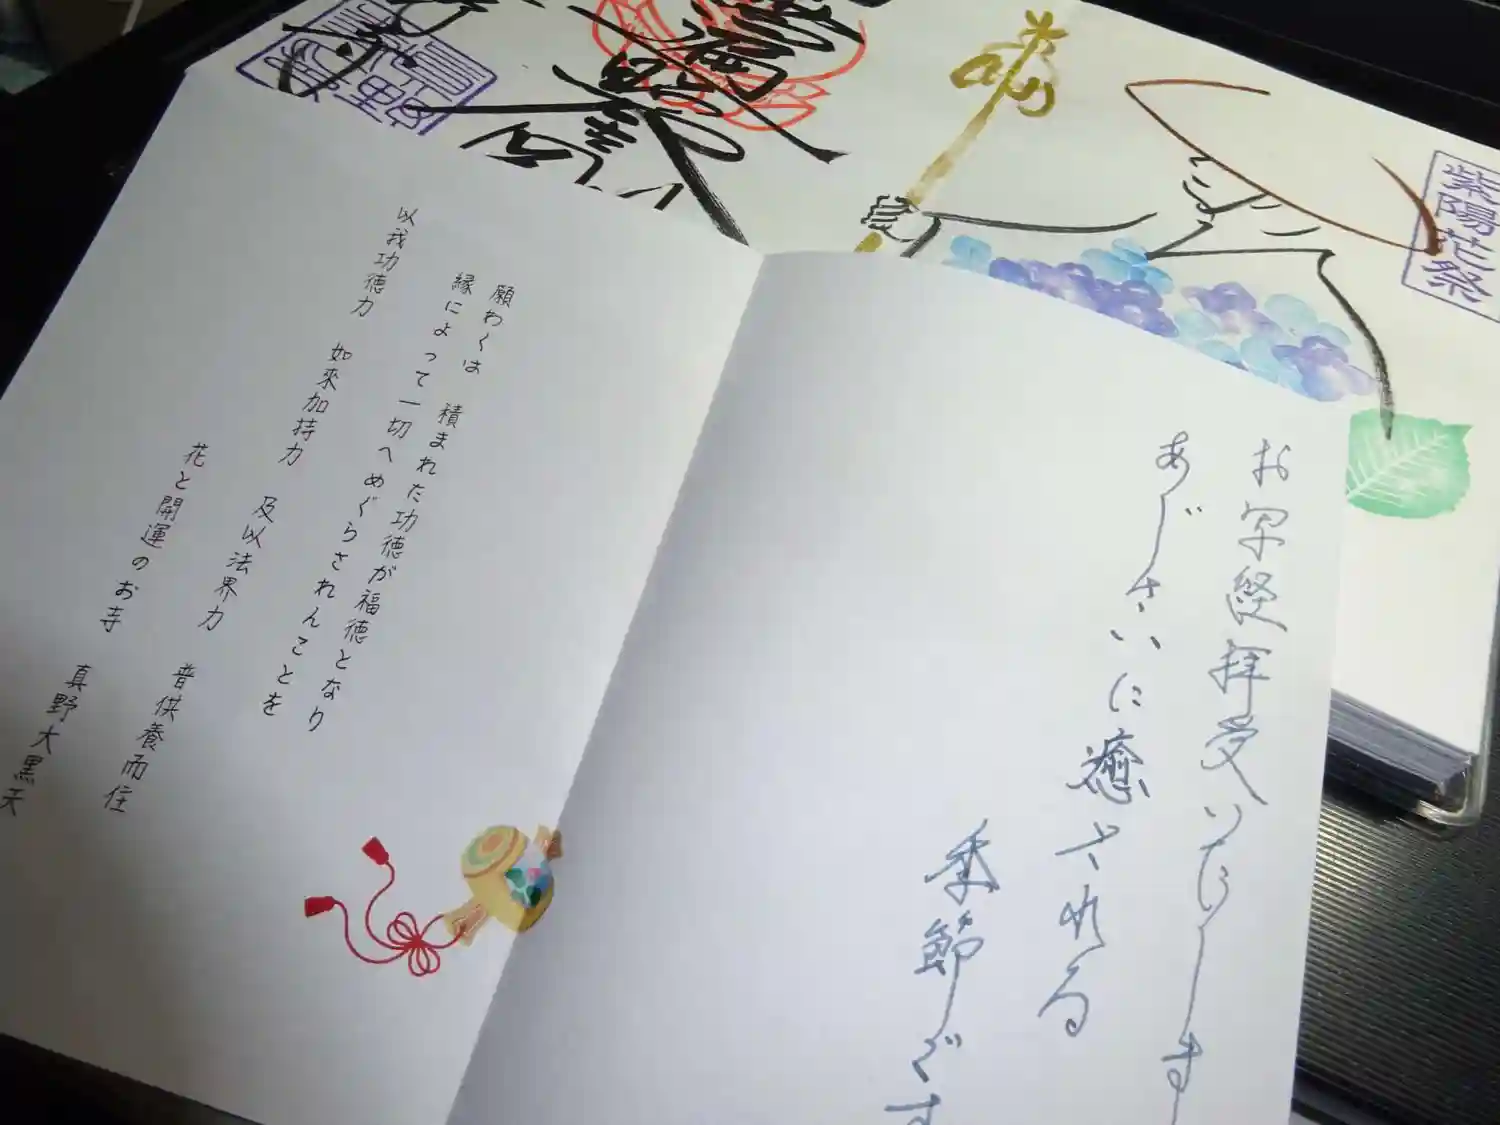 紫陽花祭
お写経拝受いたします
あじさいに癒される
季節です
願わくは 積まれた功徳が福徳となり
縁によって一切へめぐらされんことを
以我功徳力 如來加持力 及以法界力 普供養而住
花と開運のお寺 真野大黒天